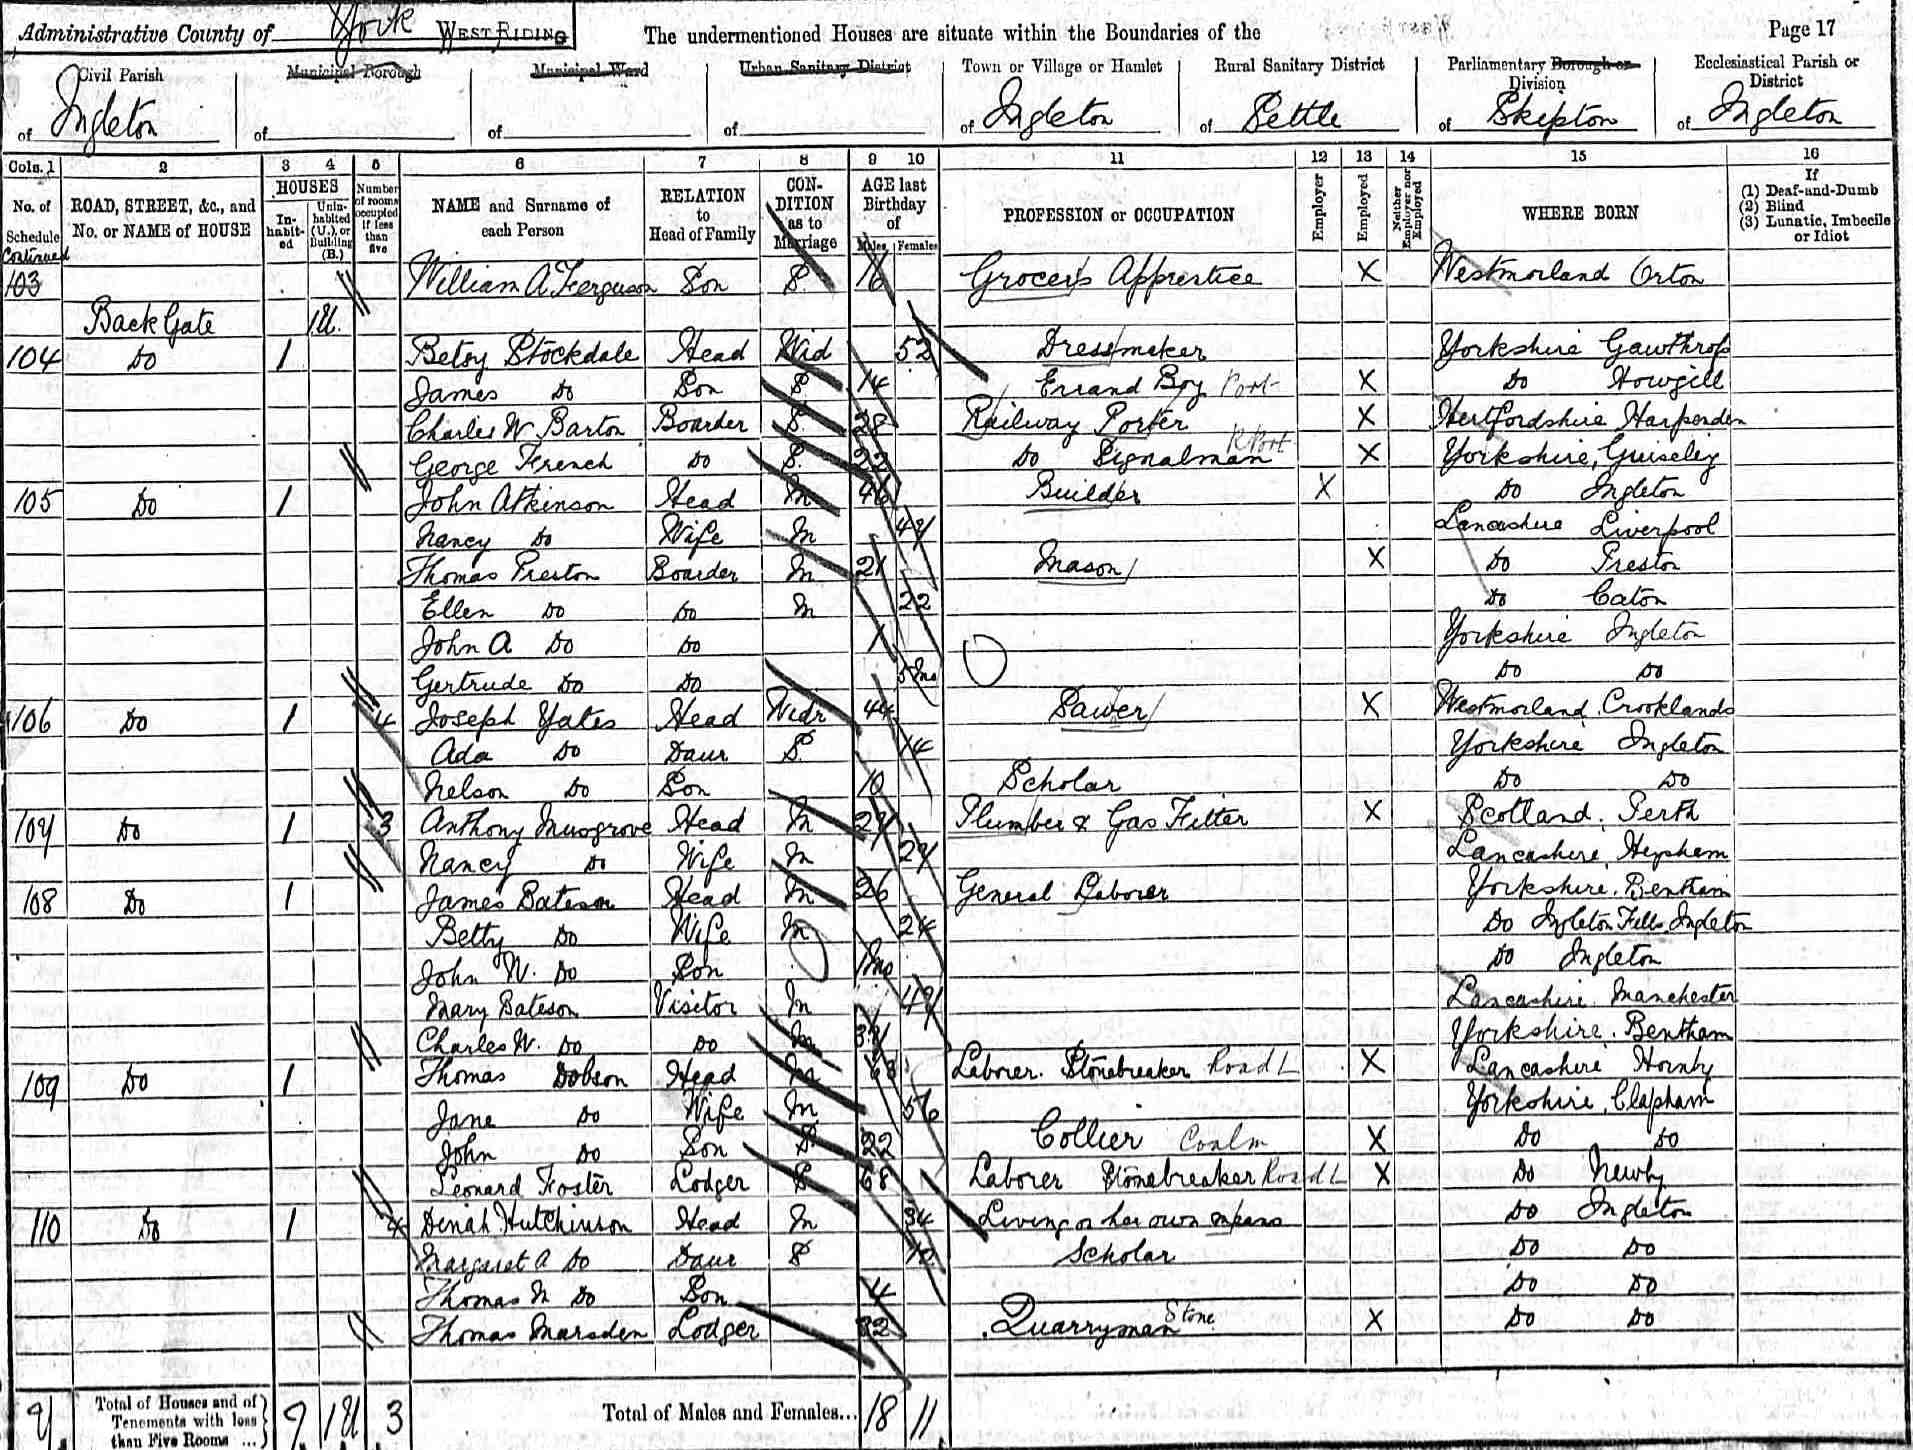 Administrative County of York WEST RIDING The undermentioned Houses are situate within the Boundaries of the Page 17
Civil Parish Municipal Borough Municipal Ward Urban Sanitary District Town or Village or Hamlet Rural Sanitary District Parliamentary Borough or Division Ecclesiastical Parish or District
of Ingleton of of of of Ingleton of Settle of Skipton of Ingleton
Cols. 1 2 3 4 5 6 7 8 9 10 11 12 13 14 15 16
No. of Schedule ROAD, STREET, &c., and No. or NAME of HOUSE HOUSES In-habit-ed Unin-habited (U.), or Building (B.) Number of rooms occupied if less than five NAME and Surname of each Person RELATION to Head of Family CON-DITION as to Marriage AGE last Birthday of Males Females PROFESSION or OCCUPATION Employer Employed Neither Employer nor Employed WHERE BORN If (1) Deaf-and-Dumb (2) Blind (3) Lunatic, Imbecile or Idiot
Continued
103 William A Ferguson Son S 16 Grocer's Apprentice X Westmorland Orton
Back Gate 1U.
104 Do 1 Betsy Stockdale Head Wid 52 Dressmaker Yorkshire Gawthrop
James Do Son S 14 Errand Boy Port- X Do Howgill
Charles W Barton Boarder S 28 Railway Porter X Hertfordshire Harpenden
George French Do S. 22 Do Signalman R Port X Yorkshire, Guiseley
105 Do 1 John Atkinson Head M 46 Builder X Do Ingleton
Nancy Do Wife M 47 Lancashire Liverpool
Thomas Preston Boarder M 21 Mason X Do Preston
Ellen Do Do M 22 Do Caton
John A Do Do 1 Yorkshire Ingleton
Gertrude Do Do 5mo Do Do
106 Do 1 4 Joseph Yates Head Widr 44 Sawer X Westmorland Crooklands
Ada Do Daur S. 14 Yorkshire Ingleton
Nelson Do Son 10 Scholar Do Do
107 Do 1 3 Anthony Musgrove Head M 27 Plumber & Gas Fitter X Scotland, Perth
Nancy Do Wife M 27 Lancashire, Heysham
108 Do 1 James Bateson Head M 26 General Laborer Yorkshire. Bentham
Betty Do Wife M 24 Do Ingleton Fells Ingleton
John W. Do Son 1mo Do Ingleton
Mary Bateson Visitor M 47 Lancashire Manchester
Charles W. Do Do M 37 Yorkshire. Bentham
109 Do 1 Thomas Dobson Head M 68 Laborer. Stonebreaker Road L X Lancashire Hornby
Jane Do Wife M 56 Yorkshire, Clapham
John Do Son S 22 Collier Coalm X Do Do
Leonard Foster Lodger S 68 Laborer Stonebreaker Road L X Do Newby
110 Do 1 4 Dinah Hutchinson Head M 34 Living on her own means Do Ingleton
Margaret A Do Daur S 12 Scholar Do Do
Thomas M Do Son 4 Do Do
Thomas Marsden Lodger 32 Quarryman Stone X Do Do
Total of Houses and of Tenements with less than Five Rooms ... 7 1U 3 Total of Males and Females... 18 11